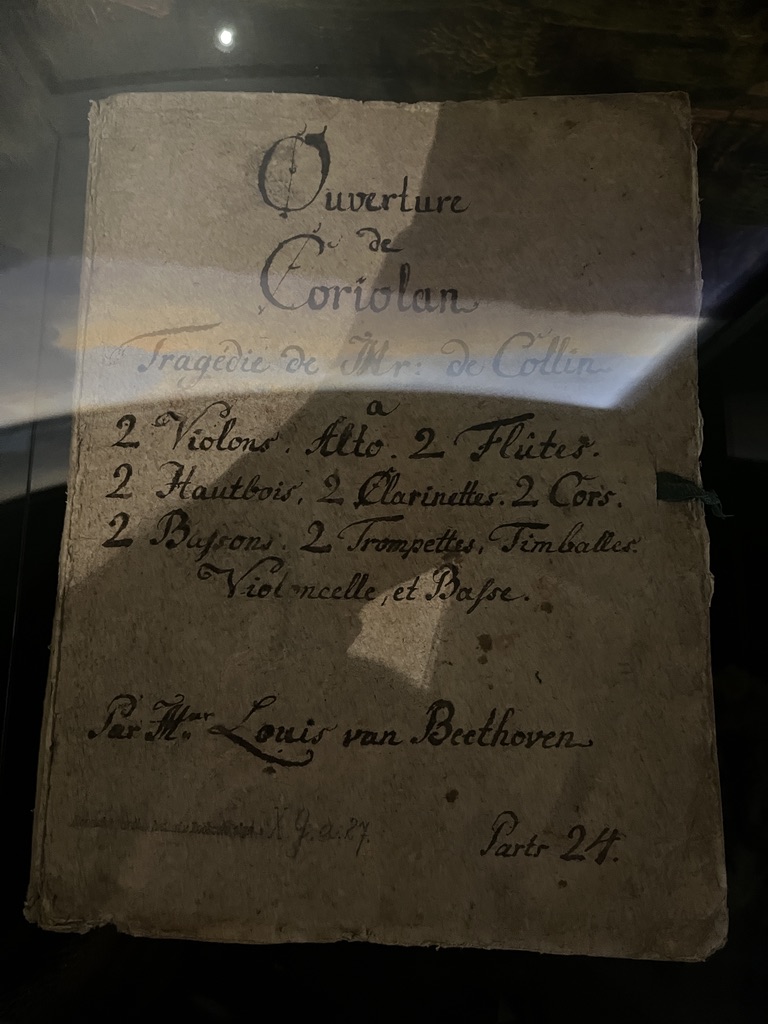 Ouverture
de
Coriolan
Tragédie de Mr: de Collin
a
2 Violons. Alto. 2 Flûtes.
2 Hautbois, 2 Clarinettes. 2 Cors.
2 Baſsons. 2 Trompettes, Timballes.
Violoncelle, et Baſse.
Par Mr. Louis van Beethoven
X g. a. 87.
Parts 24.